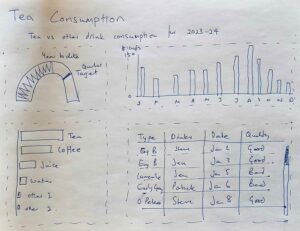 Tea Consumption
Tea vs other drink consumption for 2023-24
Year to date
Quarter
Target
# cups
15
0
J F M A M J J A S O N D
Tea
Coffee
Juice
Water
other 1
other 2
Type Drinker Date Quality
Eng B Steve Jan 1 Good
Eng B Jen Jan 3 Good
Jan 5 Bad
Earl Grey Patrick Jan 6 Bad
O Pekoe Steve Jan 8 Good